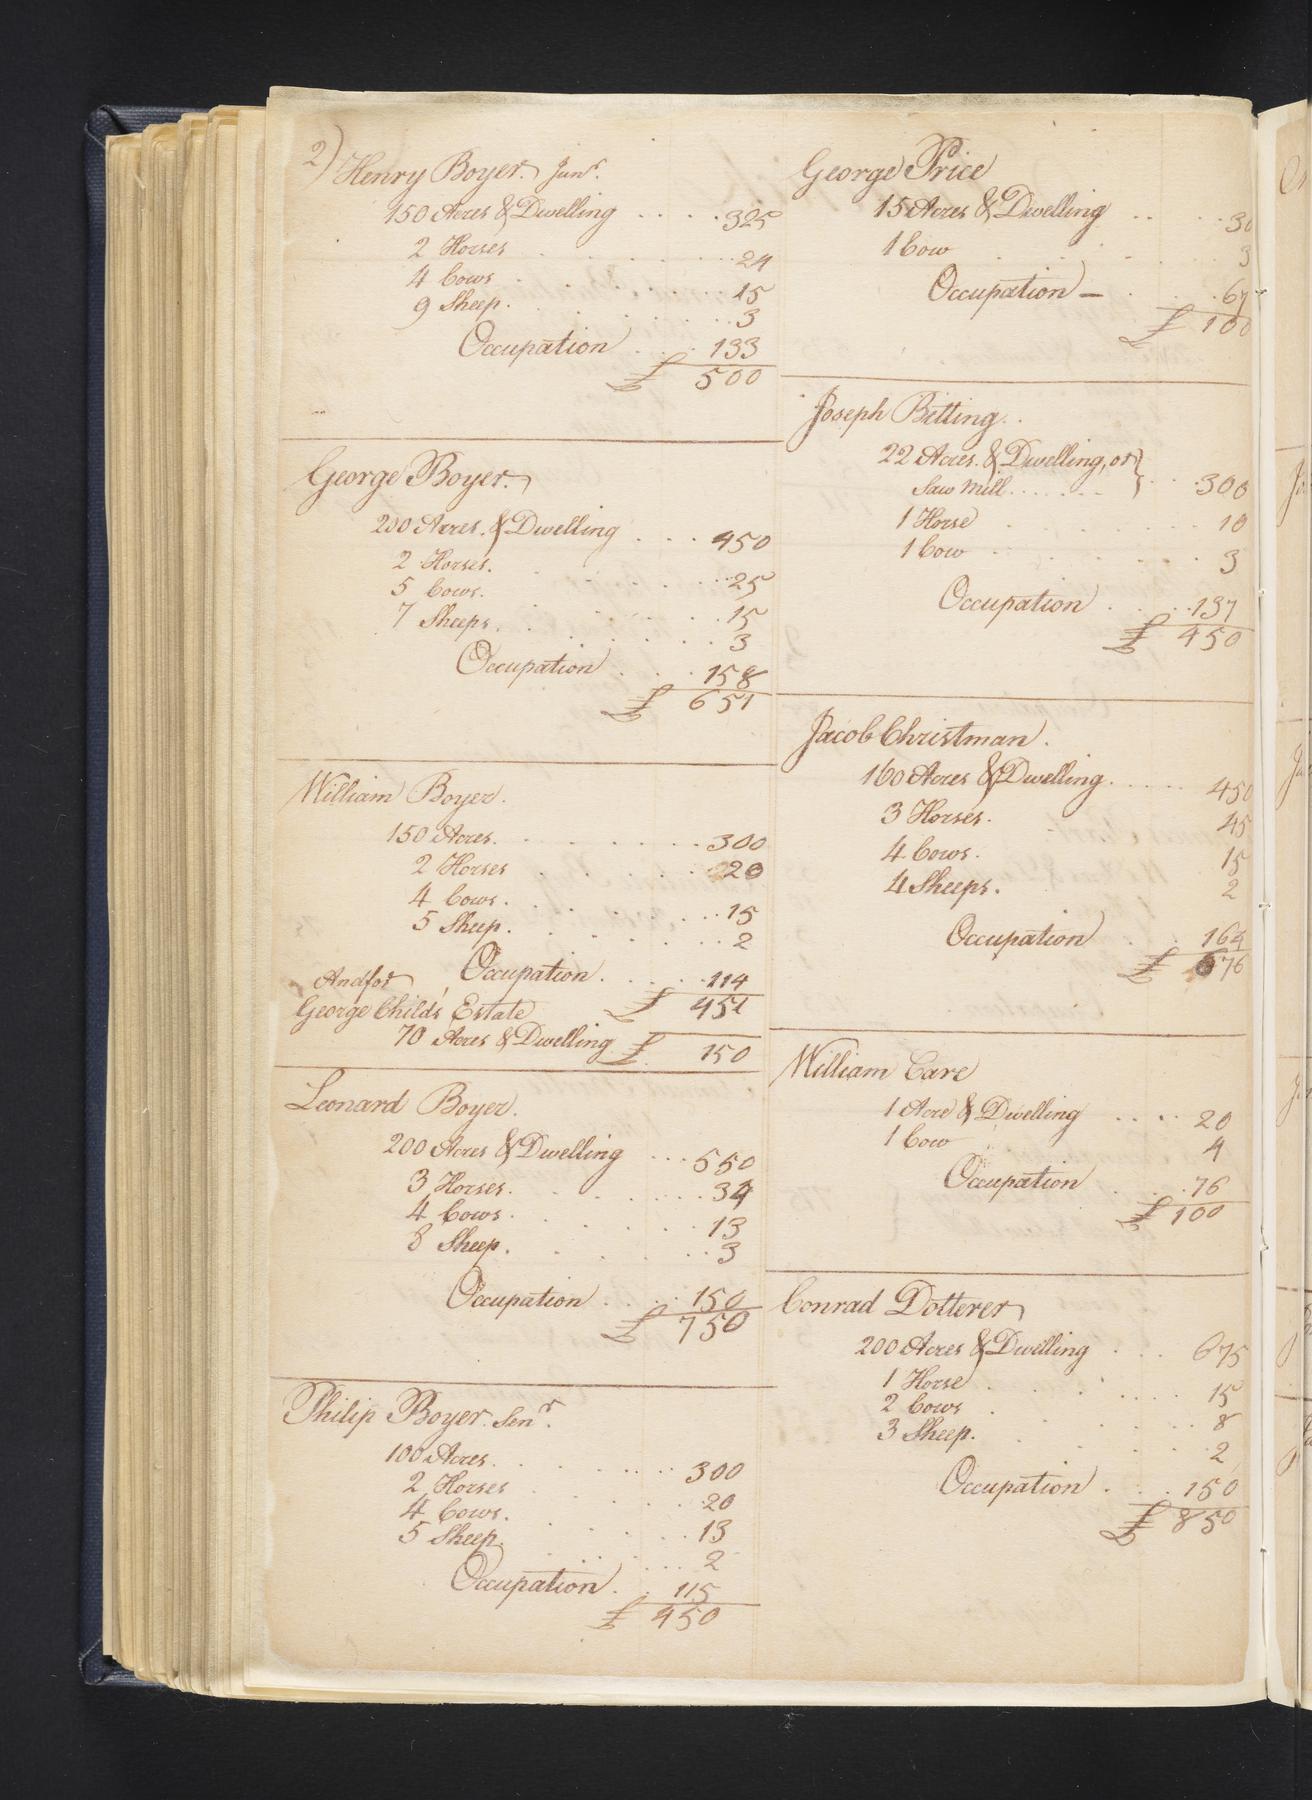 2)
Henry Boyer Junr.
150 Acres & Dwelling .... 325
2 Horses ........ 24
4 Cows ........ 15
9 Sheep ........ 3
Occupation ... 133
£ 500
George Boyer
200 Acres & Dwelling ... 450
2 Horses ........ 25
5 Cows ........ 15
7 Sheeps ........ 3
Occupation ... 158
£ 651
William Boyer
150 Acres ........ 300
2 Horses ........ 20
4 Cows ........ 15
5 Sheep ........ 2
Occupation .... 114
£ 451
And for
George Childs' Estate
70 Acres & Dwelling £ 150
Leonard Boyer
200 Acres & Dwelling ... 550
3 Horses ........ 34
4 Cows ........ 13
8 Sheep ........ 3
Occupation .... 150
£ 750
Philip Boyer Senr.
100 Acres ........ 300
2 Horses ........ 20
4 Cows ........ 13
5 Sheep ........ 2
Occupation .. 115
£ 450
George Price
15 Acres & Dwelling .... 30
1 Cow ........ 3
Occupation — .. 67
£ 100
Joseph Bitting
22 Acres & Dwelling, or }
Saw Mill ...... } ... 300
1 Horse ........ 10
1 Cow ........ 3
Occupation ... 137
£ 450
Jacob Christman
160 Acres & Dwelling ..... 450
3 Horses 45
4 Cows 15
4 Sheeps 2
Occupation .. 164
£ 676
William Care
1 Acre & Dwelling .... 20
1 Cow 4
Occupation ... 76
£ 100
Conrad Dotterer
200 Acres & Dwelling ... 675
1 Horse ........ 15
2 Cows ........ 8
3 Sheep ........ 2
Occupation ... 150
£ 850